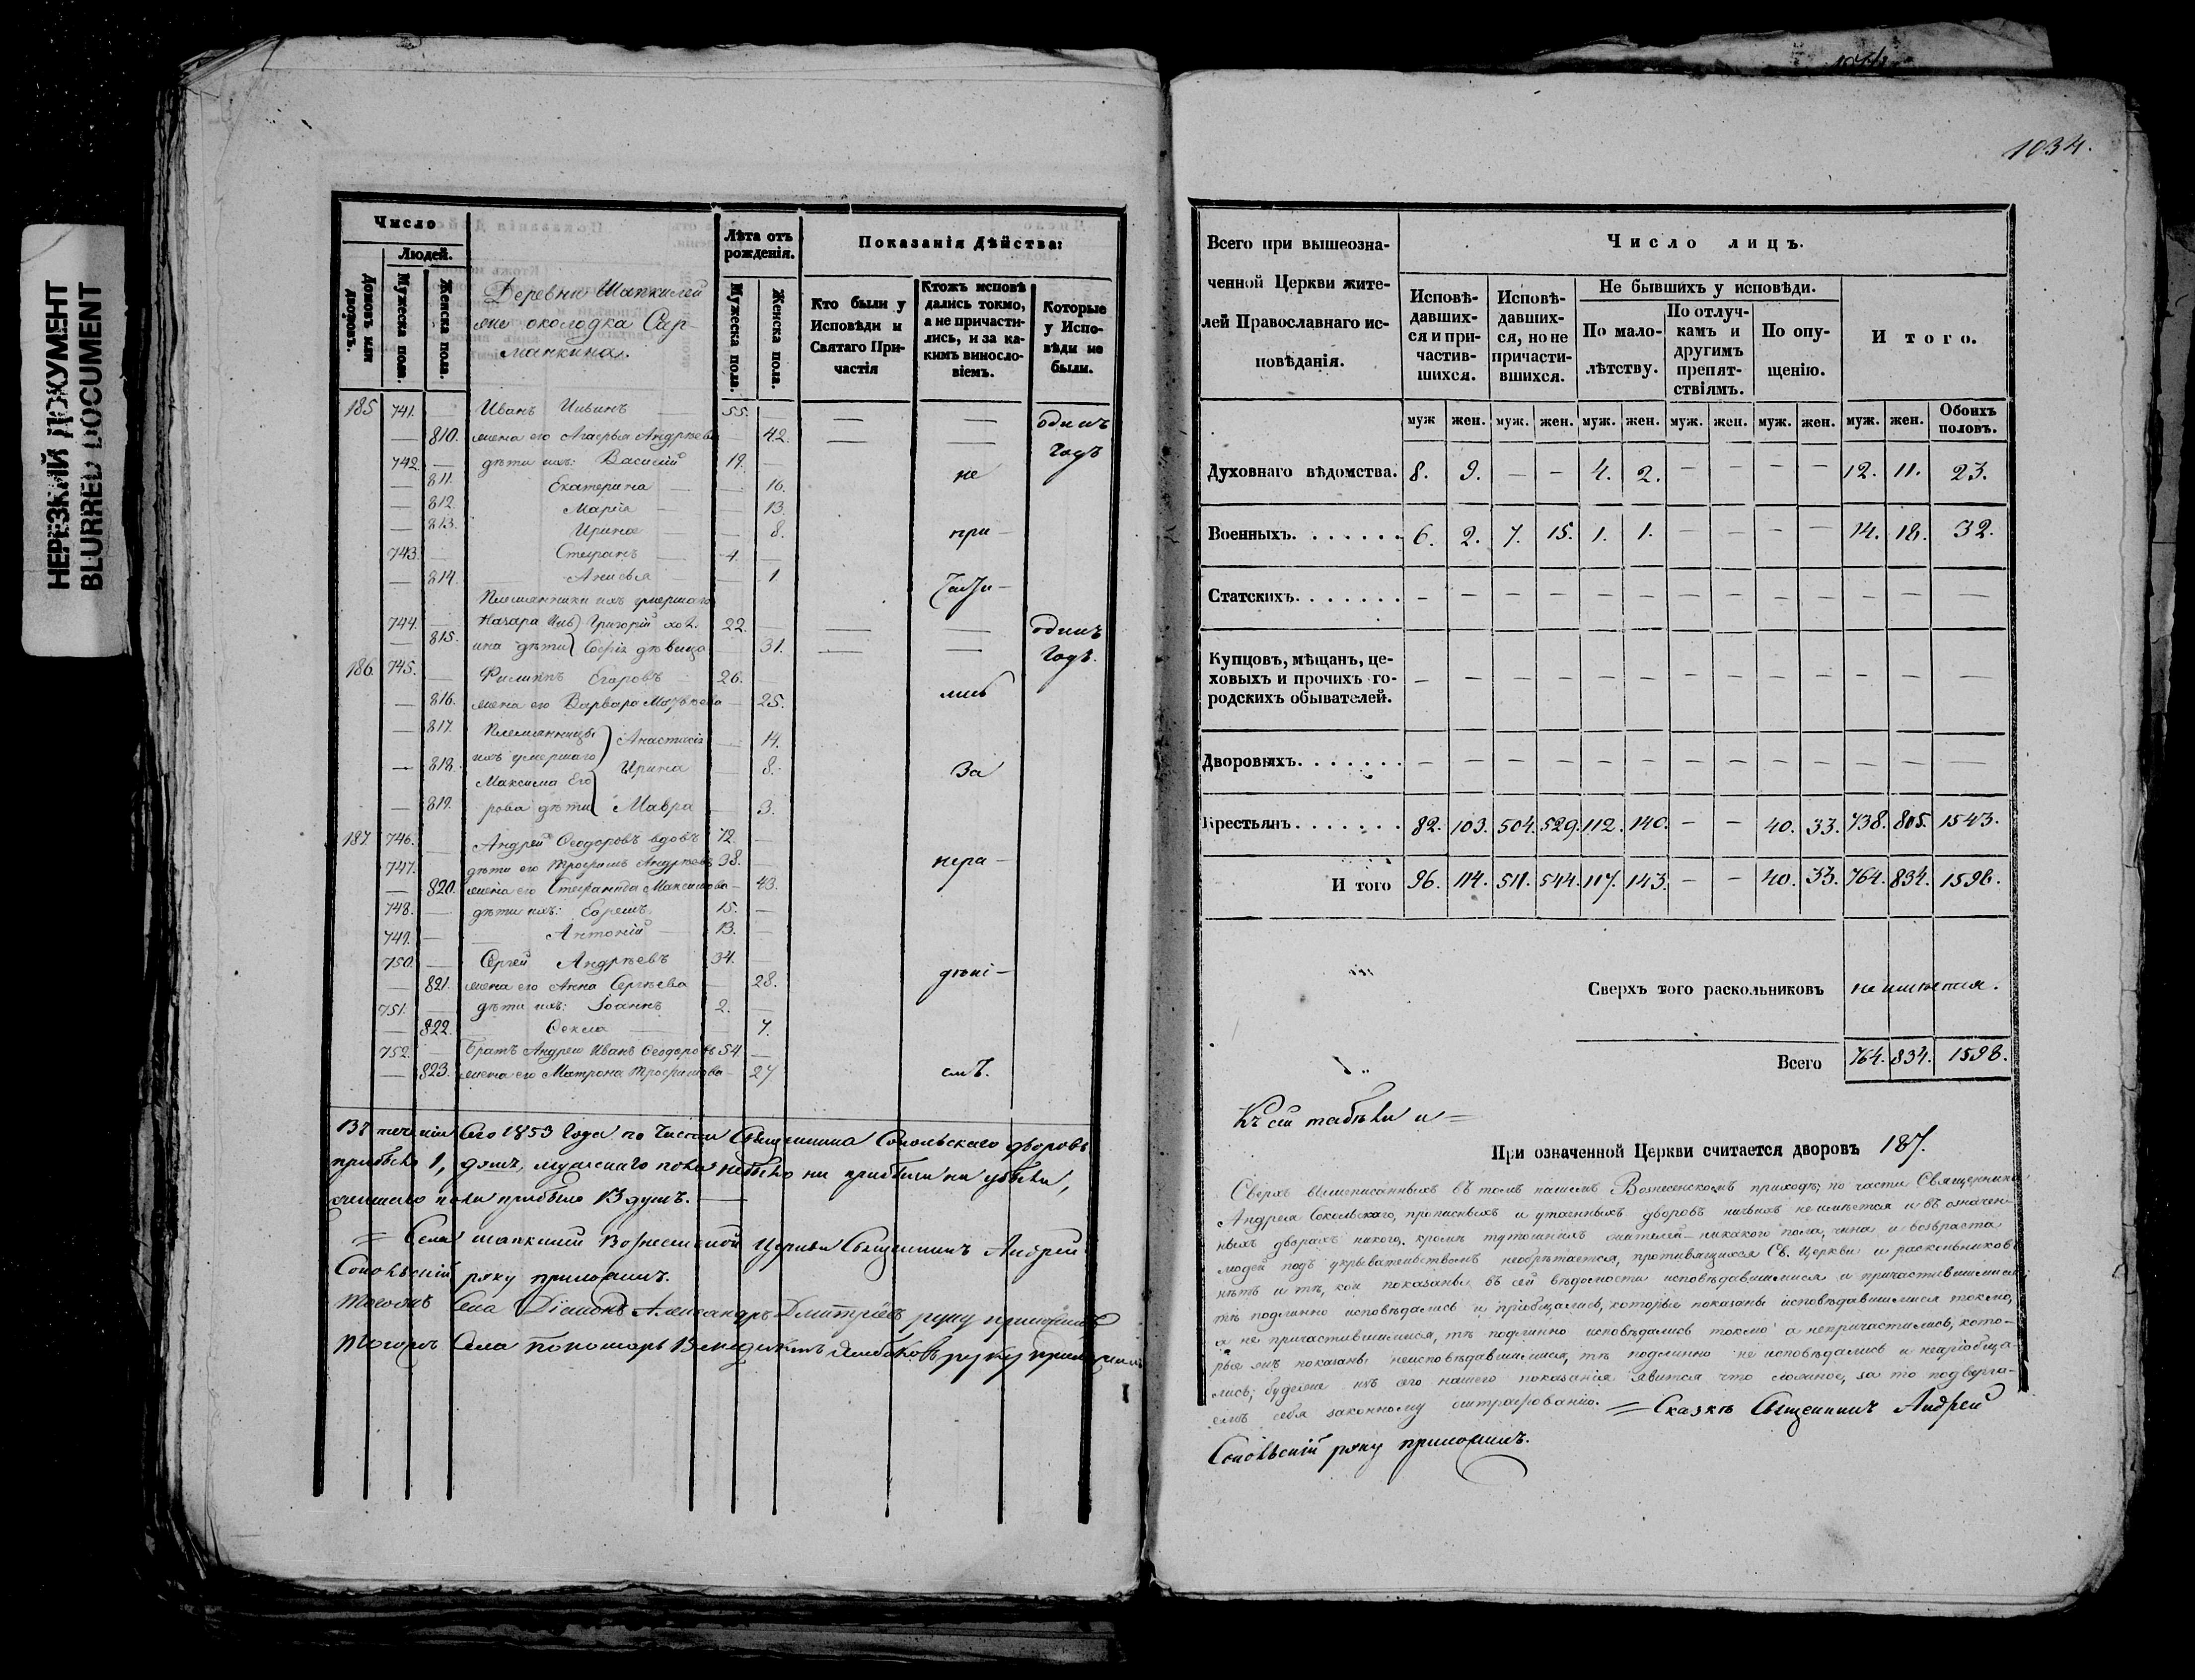 НЕРЕЗКИЙ ДОКУМЕНТ
BLURRED DOCUMENT
Число
Людей.
Домовъ или дворовъ.
Мужеска пола.
Женска пола.
Деревни Шапкилей
околодка Сар-
манкина.
Лѣта отъ рожденія.
Мужеска пола.
Женска пола.
Показанія Дѣйства:
Кто были у Исповѣди и Святаго Причастія
Ктожъ исповѣдались токмо, а не причастились, и за какимъ винословіемъ.
Которые у Исповѣди не были.
185 741. — Иванъ Ивинъ 55. — — — одинъ
— 810. жена его Агафья Андрѣева — 42. — — годъ
742. — дѣти ихъ: Василій 19. —
— 811. Екатерина — 16. не
— 812. Марія — 13.
— 813. Ирина — 8. при-
743. — Стефанъ 4. —
— 814. Анисья — 1 части-
Племянники ихъ умершаго
744. — Назара Ив Григорій хол. 22. — — — одинъ
— 815. ина дѣти Софія дѣвица — 31. — — годъ.
186. 745. — Филиппъ Егоровъ 26. —
— 816. жена его Варвара — 25. лись
— 817. Племянницы Анастасія — 14.
— 818. ихъ умершаго Ирина — 8. за
Максима Его
— 819. рова дѣти Мавра — 3.
187 746. — Андрей Ѳеодоровъ вдовъ 72. —
747. — дѣти его Трофимъ Андрѣевъ 38. — нера-
— 820. жена его Стефанида Максимова — 43.
748. — дѣти ихъ: Ефремъ 15. —
749. — Антоній 13. —
750. — Сергей Андрѣевъ 34. — дѣні-
— 821. жена его Анна Сергѣева — 28.
751. — дѣти ихъ: Іоаннъ 2. —
— 822. Ѳекла — 7.
752. — Братъ Андрею Иванъ Ѳеодоровъ 54. —
— 823. жена его Матрона Трофимова — 27. емъ.
Въ теченіи сего 1853 года по части Священника Сокольскаго дворовъ
прибыло 1, душъ мужскаго пола небыло ни прибыли ни убыли,
женскаго пола прибыло 13 душъ. —
= Села Шапкилей Вознесенской Церкви Священникъ Андрей
Сокольскій руку приложилъ.
Тогожъ Села Діаконъ Александръ Дмитріевъ руку приложилъ
Тогожъ Села Пономарь Венедиктъ руку приложилъ
1034.
Всего при вышеозна-
ченной Церкви жите-
лей Православнаго ис-
повѣданія.
Число лицъ.
Исповѣ-давших-ся и при-частив-шихся.
Исповѣ-давших-ся, но не причасти-вшихся.
Не бывшихъ у исповѣди.
По мало-лѣтству.
По отлуч-камъ и другимъ препят-ствіямъ.
По опу-щенію.
Итого.
муж жен. муж. жен. муж. жен. муж. жен. муж. жен. муж. жен. Обоихъ половъ.
Духовнаго вѣдомства. 8. 9. — — 4. 2. — — — — 12. 11. 23.
Военныхъ. . . . . . . 6. 2. 7. 15. 1. 1. — — — — 14. 18. 32.
Статскихъ. . . . . . . — — — — — — — — — — — — —
Купцовъ, мѣщанъ, це-
ховыхъ и прочихъ го- — — — — — — — — — — — — —
родскихъ обывателей.
Дворовыхъ. . . . . . . — — — — — — — — — — — — —
Крестьянъ. . . . . . . 82. 103. 504. 529. 112. 140. — — 40. 33. 738. 805. 1543.
И того 96. 114. 511. 544. 117. 143. — — 40. 33. 764. 834. 1598.
Сверхъ того раскольниковъ не имѣется.
Всего 764. 834. 1598.
Къ сей табели и =
При означенной Церкви считается дворовъ 187.
Сверхъ вышеписанныхъ въ томъ нашемъ Вознесенскомъ приходѣ, по части Священника
Андрея Сокольскаго, прописныхъ и утаенныхъ дворовъ никакихъ неимѣется и въ означен-
ныхъ дворахъ никого, кромѣ тутошнихъ жителей никакого пола, чина и возраста
людей подъ укрывательствомъ необрѣтается, противящихся Св. Церкви и раскольниковъ
нѣтъ и тѣ, кои показаны въ сей вѣдомости исповѣдавшимися и причастившимися,
тѣ подлинно исповѣдались и пріобщались, которые показаны исповѣдавшимися токмо,
а не причастившимися, тѣ подлинно исповѣдались токмо а непричастились, кото-
рые жъ показаны неисповѣдавшимися, тѣ подлинно не исповѣдались и непріобща-
лись; буде же изъ сего нашего показанія явится что ложное, за то подверга-
емъ себя законному штрафованію. = Священникъ Андрей
Сокольскій руку приложилъ.